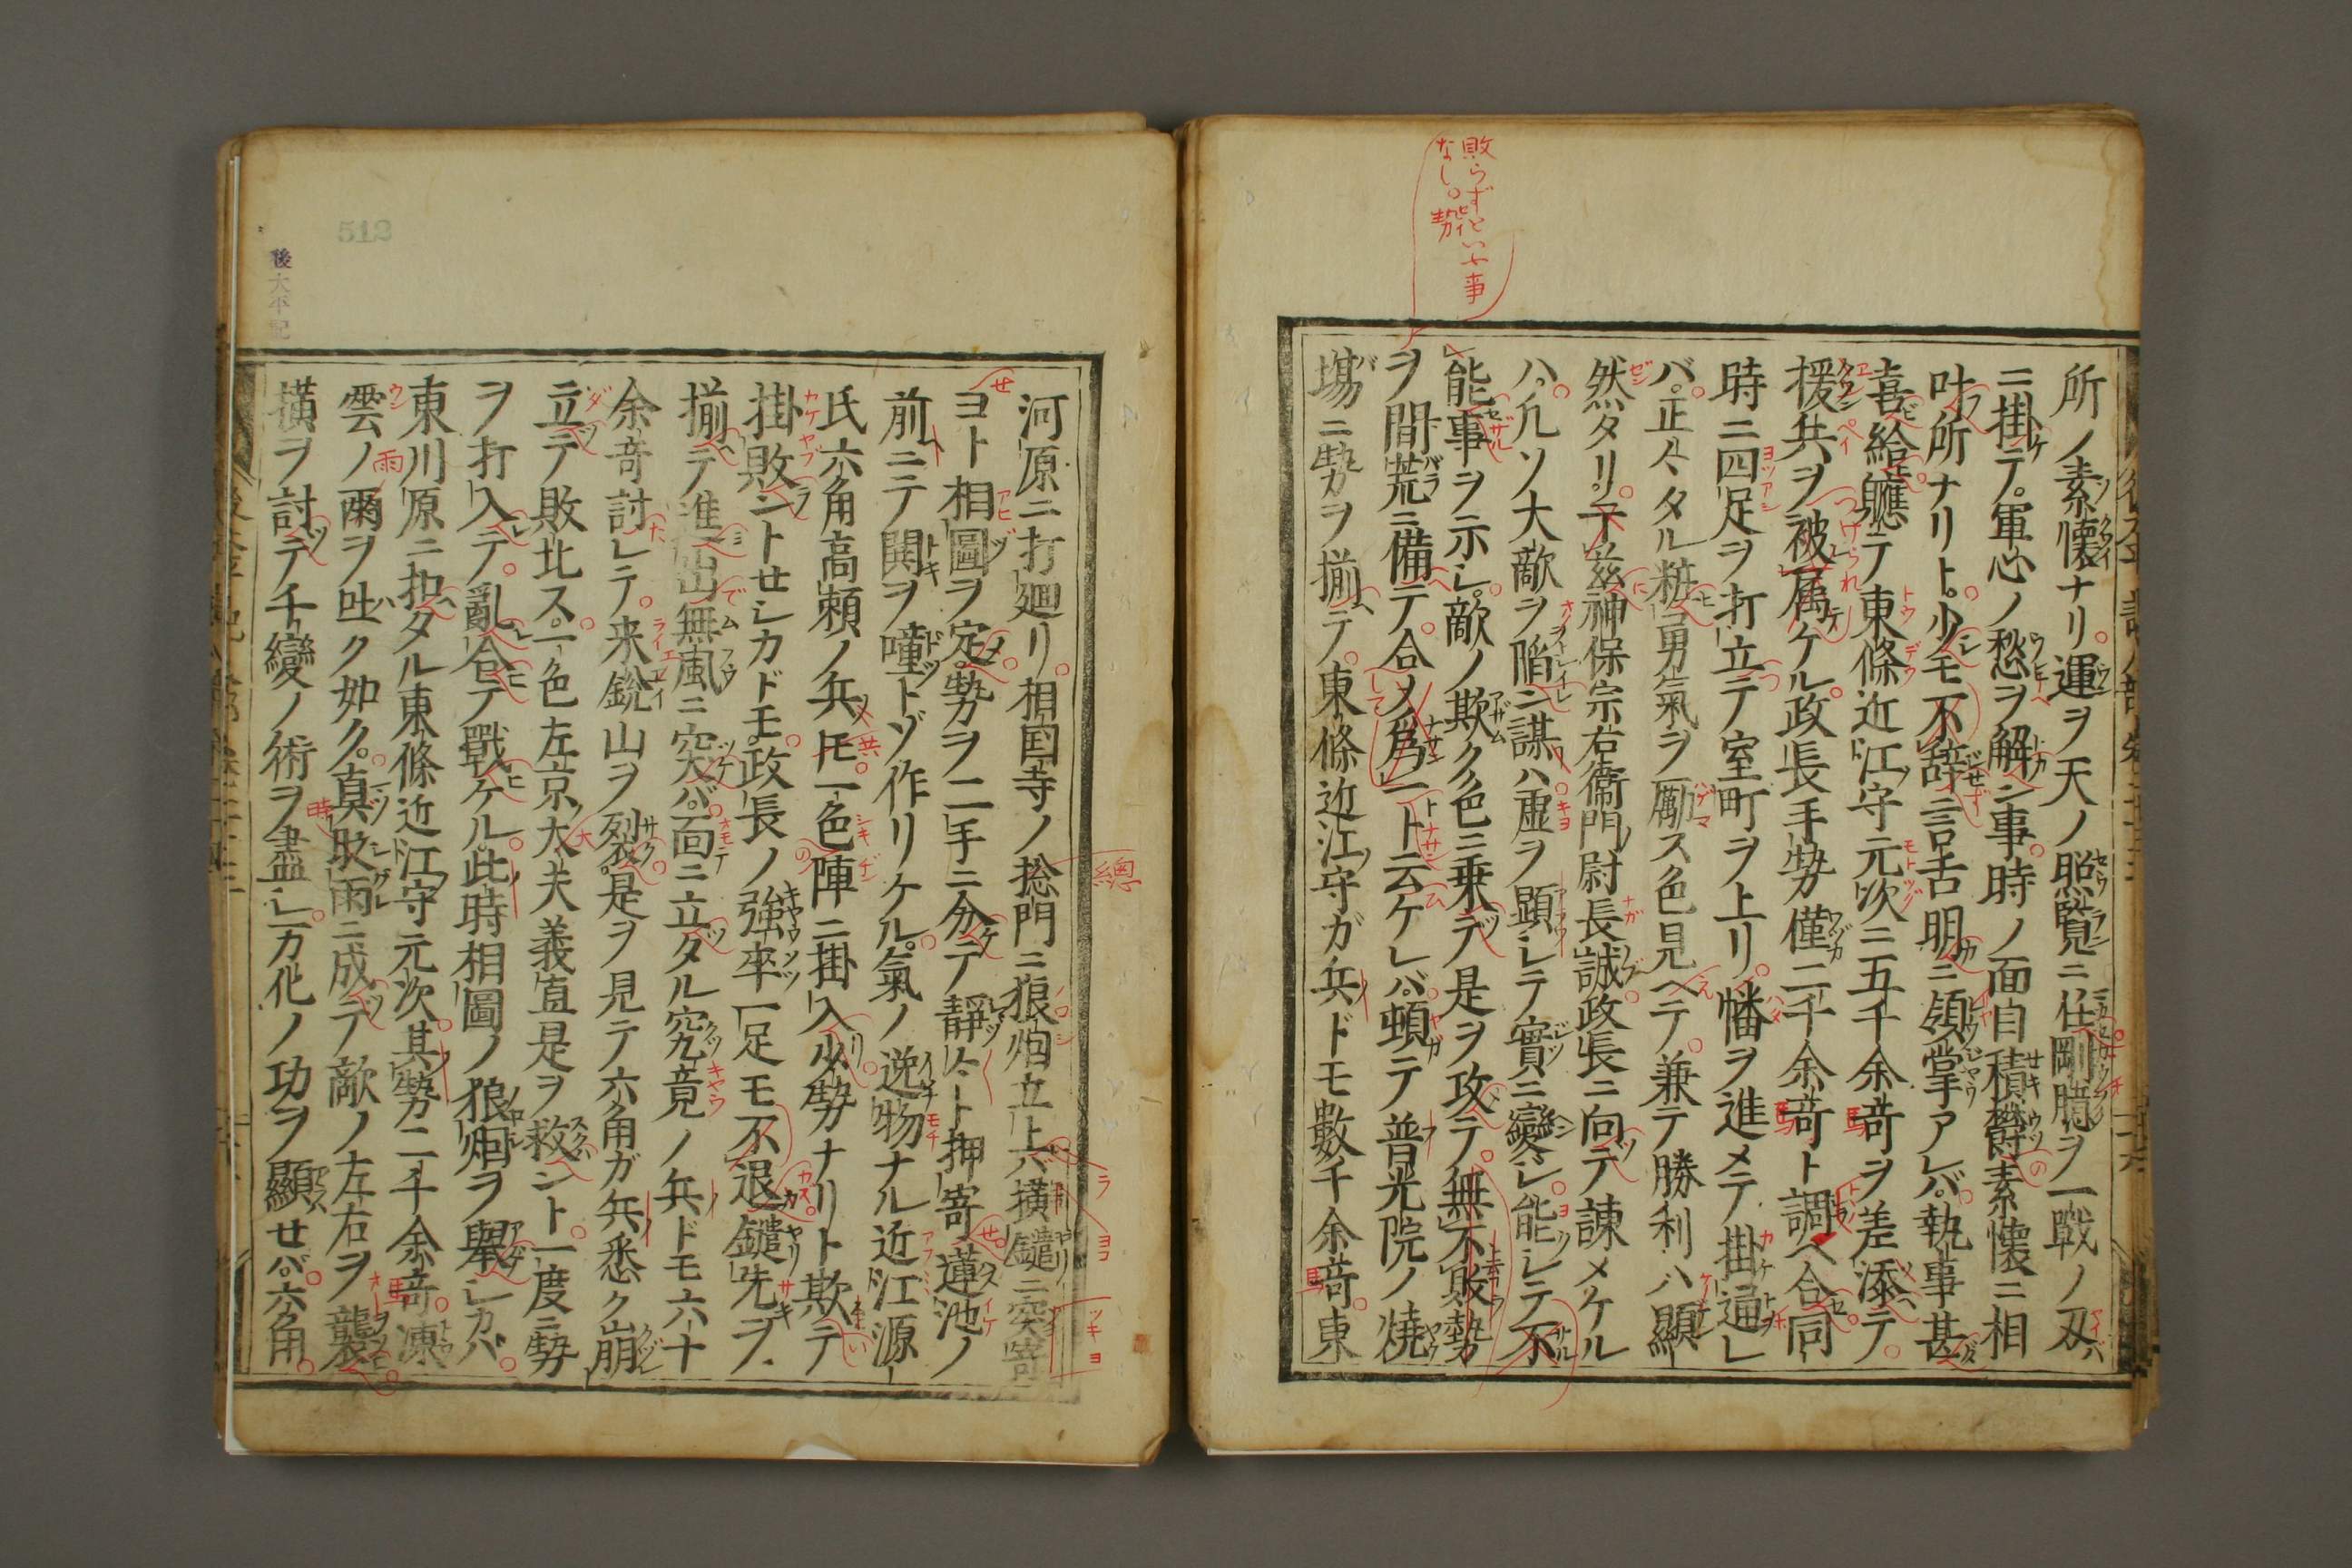 敗らずといふ事
なし。勢
所ノ素懐ナリ運ヲ天ノ照覧ニ任剛臆ヲ一戰ノ刄
ニ掛テ軍心ノ愁ヲ解ン事時ノ面目積欝素懐ニ相
叶所ナリト少モ不辞言舌明ニ領掌アレバ執事甚
喜給軈テ東條近江守元次ニ五千余竒ヲ差添テ
援兵ヲ被属ケル政長手勢僅二千余竒ト調ヘ合同
時ニ四足ヲ打立テ室町ヲ上リ幡ヲ進メテ掛逼レ
バ正々タル粧勇氣ヲ勵ス色見ヘテ兼テ勝利ハ顯
然タリ于茲神保宗右衞門尉長誠政長ニ向テ諌メケル
ハ凡ソ大敵ヲ陷ン謀ハ虚ヲ顕レテ實ニ變レ能レテ不
能事ヲ示レ敵ノ欺ク色ニ乗テ是ヲ攻テ無不敗勢
ヲ間荒ニ備テ合メ爲一ト云ケレバ頓テ普光院ノ燒
塲ニ勢ヲ揃テ東條近江守ガ兵ドモ數千余竒東
河原ニ打廻リ相国寺ノ捴門ニ狼烟立上バ横鑓ニ突寄
ヨト相圖ヲ定勢ヲ二手ニ分テ靜々ト押寄蓮池ノ
前ニテ鬨ヲ噇トゾ作リケル氣ノ逸物ナル近江源
氏六角高頼ノ兵𪜈一色陣ニ掛入少勢ナリト欺テ
掛敗ントせレカドモ政長ノ強卒一足モ不退鑓先ヲ
揃テ進出無風ニ突バ面ニ立タル究竟ノ兵ドモ六十
余竒討レテ来鋭山ヲ裂是ヲ見テ六角ガ兵悉ク崩
立テ敗北ス一色左京大夫義直是ヲ救ント一度ニ勢
ヲ打入テ亂合テ戰ケル此時相圖ノ狼烟ヲ擧レカバ
東川原ニ扣タル東條近江守元次其勢二千余竒凍
雲ノ雨ヲ吐ク如ク真時雨ニ成テ敵ノ左右ヲ襲
横ヲ討テ千變ノ術ヲ盡レ万化ノ功ヲ顯せバ六角
總
512
後太平記